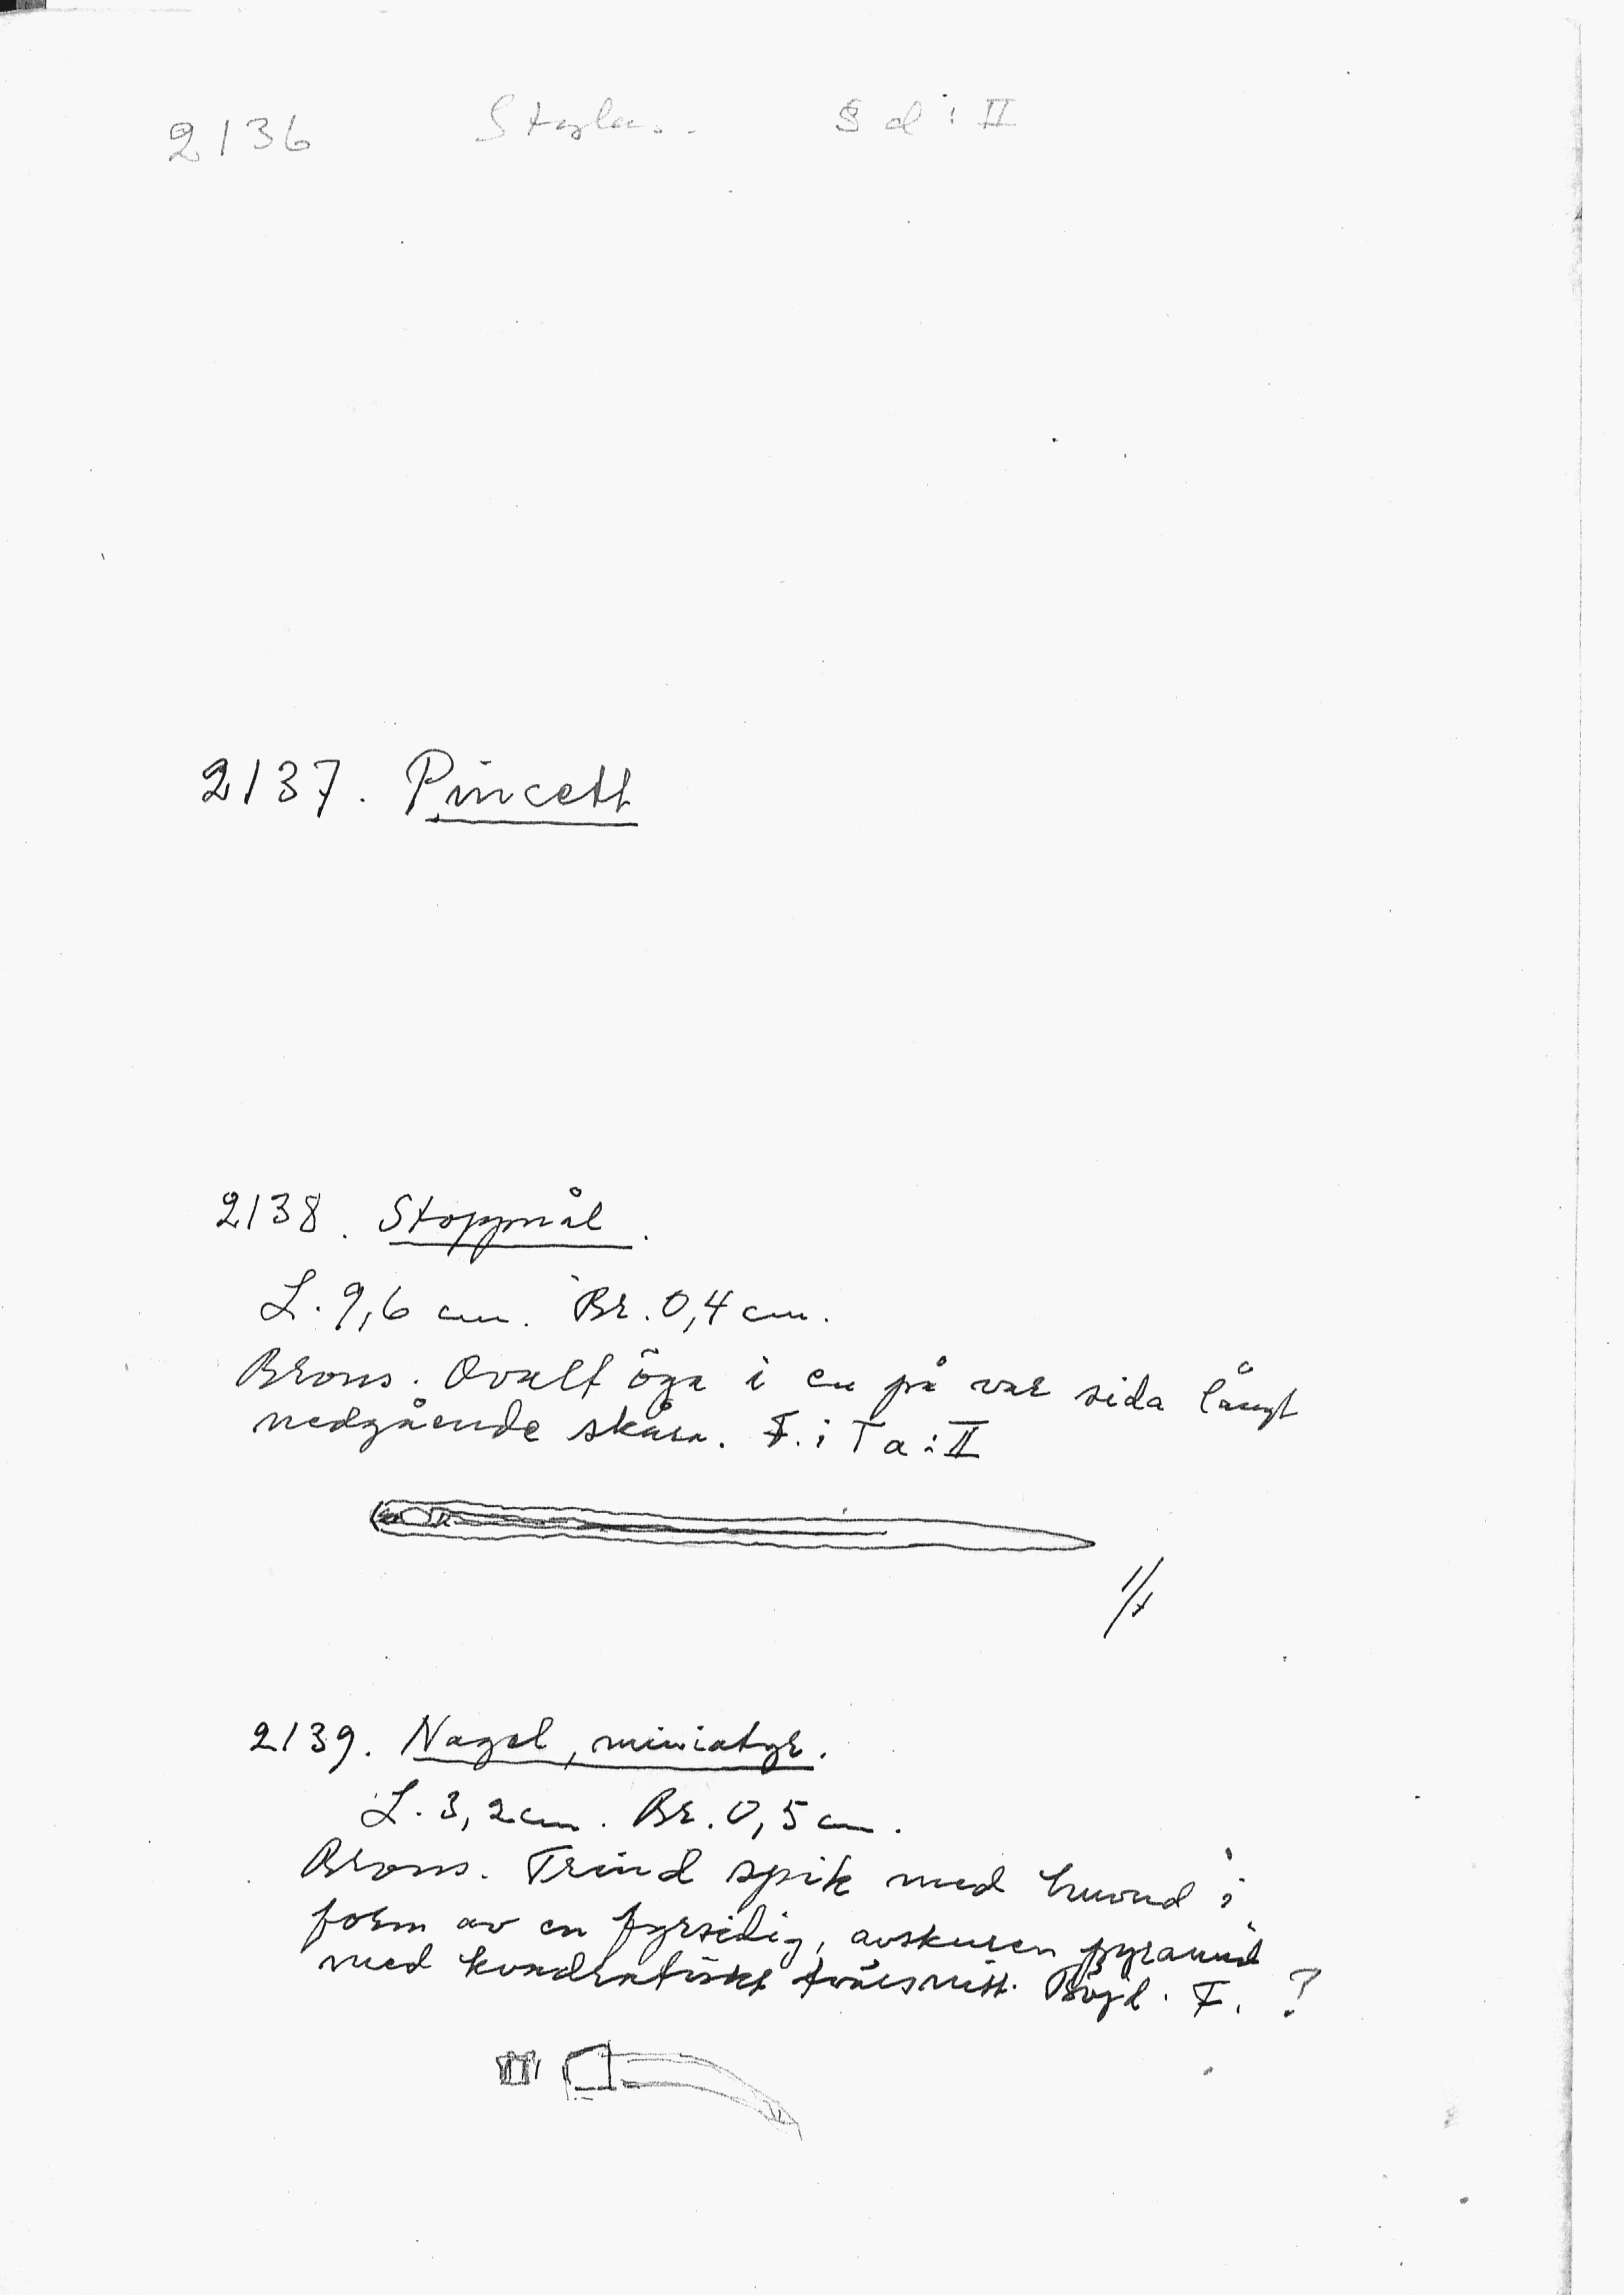 2136 Stylus. S d : II
2137. Pincett
2138. Stoppnål.
L. 9,6 cm. Br. 0,4 cm.
Brons. Ovalt öga i en på var sida långt
nedgående skåra. F. i T a : II
1/1
2139. Nagel, miniatyr.
L. 3,2 cm. Br. 0,5 cm.
Brons. Trind spik med huvud i
form av en fyrsidig, avskuren pyramid
med kvadratiskt tvärsnitt. Böjd. F. ?